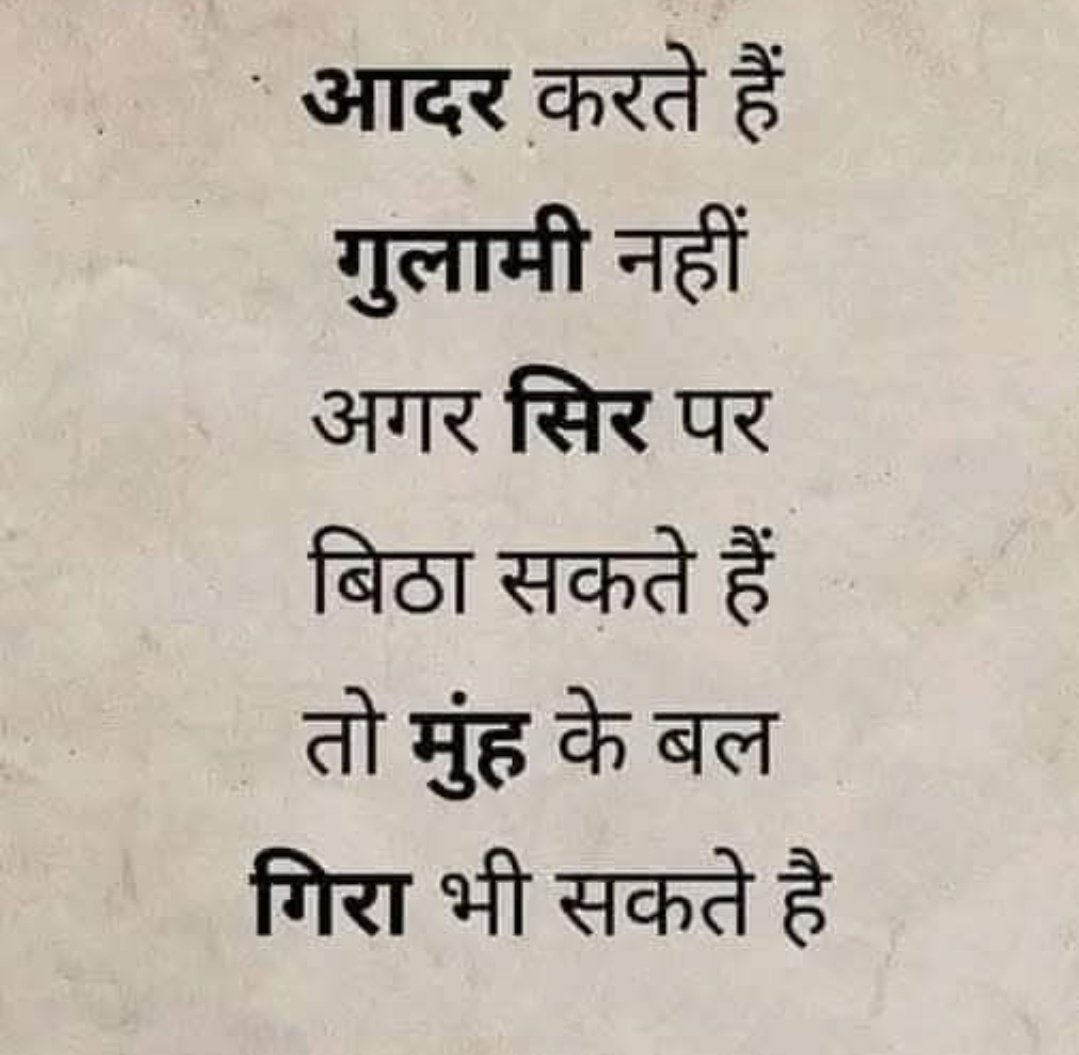 आदर करते हैं
गुलामी नहीं
अगर सिर पर
बिठा सकते हैं
तो मुंह के बल
गिरा भी सकते है